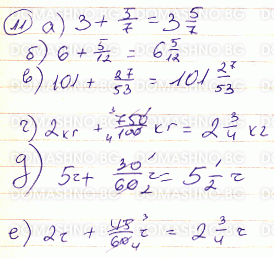 11 а) 3 + 5/7 = 3 5/7
б) 6 + 5/12 = 6 5/12
в) 101 + 27/53 = 101 27/53
г) 2 кг + 750/100 кг = 2 3/4 кг
д) 5ч + 30/60 ч = 5 1/2 ч
е) 2ч + 45/60 ч = 2 3/4 ч